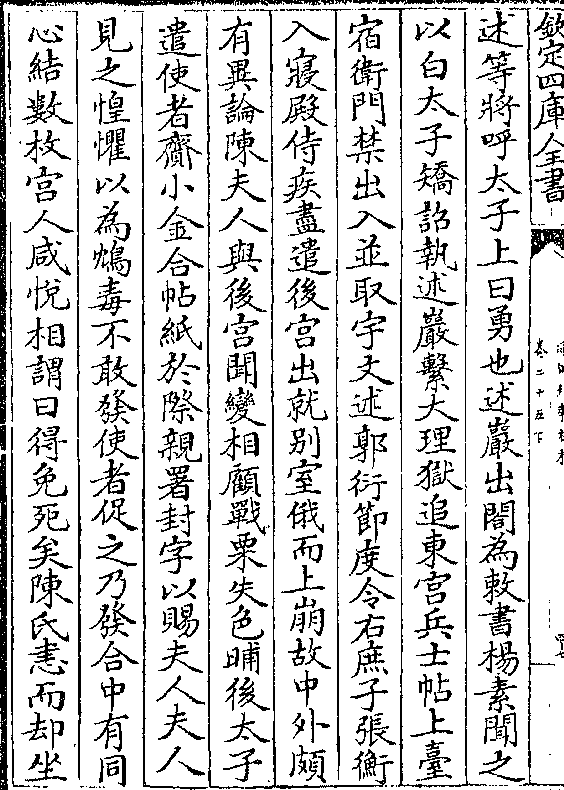 欽定四庫全書
卷二十五下
述等將呼太子上曰勇也述巖出閤為敕書楊素聞之
以白太子矯詔執述巖繫大理獄追東宮兵士帖上臺
宿衛門禁出入並取宇文述郭衍節度令右庶子張衡
入寢殿侍疾盡遣後宮出就別室俄而上崩故中外頗
有異論陳夫人與後宮聞變相顧戰栗失色晡後太子
遣使者齎小金合帖紙於際親署封字以賜夫人夫人
見之惶懼以為鴆毒不敢發使者促之乃發合中有同
心結數枚宮人咸悅相謂曰得免死矣陳氏恚而却坐